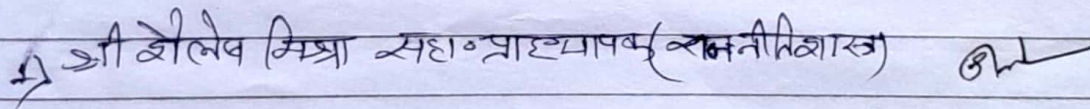 1) श्री शैलेष मिश्रा सहा॰प्राध्यापक (राजनीतिशास्त्र)